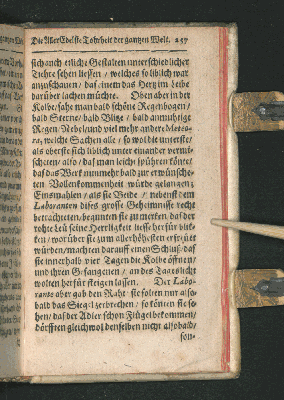 Die AllerEdelste Tohrheit der gantzen Welt. 257
sich auch etliche Gestalten unterschiedlicher
Tiehre sehen liessen / welches so liblich war
anzuschauen / daß einem das Hertz im Leibe
darüber lachen müchte. Oben aber in der
Kolbe / sahe man bald schöne Regenbogen /
bald Sterne / bald Blitze / bald anmuhtige
Regen Nebel / und viel mehr andere Meteo-
ra, welche Sachen alle / so wol die unterste /
als oberste sich liblich unter einander vermi-
scheten / also / daß man leicht spühren könte /
daß das Werk nunmehr bald zur erwünsche-
ten Vollenkommenheit würde gelangen.
Einsmahlen / als sie Beide / nebenst dem
Laboranten dises grosse Geheimnisse recht
betrachteten / begunten sie zu merken / daß der
rohte Leu seine Herrligkeit liesse herfür blik-
ken / worüber sie zum allerhöhesten erfreuet
würden / machten darauf einen Schluß / daß
sie innerhalb vier Tagen die Kolbe öfnen /
und ihren Gefangenen / an des Tageslicht
wolten herfür steigen lassen. Der Labo-
rante aber gab den Raht / sie solten nur also-
bald das Siegel zerbrechen / so könten sie se-
hen / daß der Adler schon Flügel bekommen /
dörfften gleichwol denselben nicht alsobald /
son-